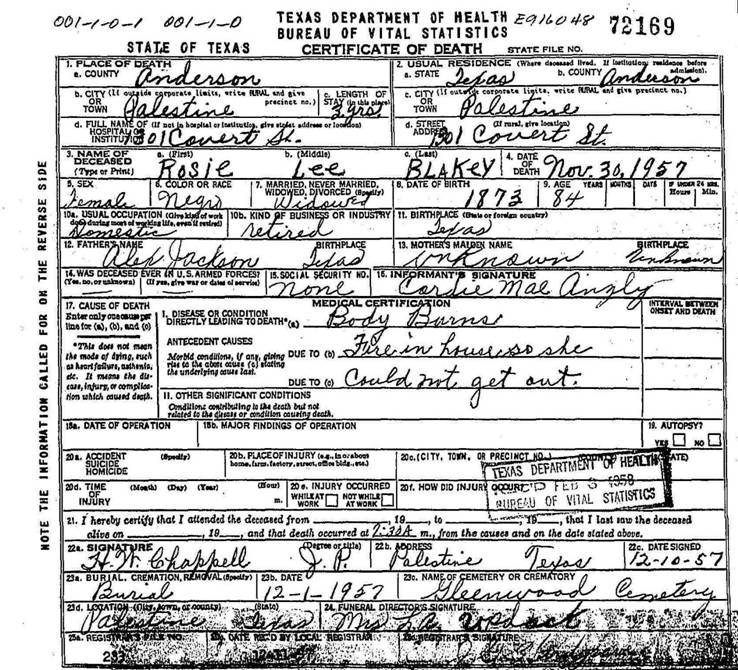 001-1-0-1 001-1-0 TEXAS DEPARTMENT OF HEALTH E916048 72169
BUREAU OF VITAL STATISTICS
STATE OF TEXAS CERTIFICATE OF DEATH STATE FILE NO.
1. PLACE OF DEATH 2. USUAL RESIDENCE (Where deceased lived. If institution, residence before admission).
a. COUNTY Anderson a. STATE Texas b. COUNTY Anderson
b. CITY (If outside corporate limits, write RURAL and give precinct no.) OR TOWN Palestine c. LENGTH OF STAY (in this place) 3 yrs. c. CITY (If outside corporate limits, write RURAL and give precinct no.) OR TOWN Palestine
d. FULL NAME OF (If not in hospital or institution, give street address or location) HOSPITAL OR INSTITUTION 1301 Covert St. d. STREET ADDRESS (If rural, give location) 1301 Covert St.
3. NAME OF DECEASED (Type or Print) a. (First) Rosie b. (Middle) Lee c. (Last) BLAKEY 4. DATE OF DEATH Nov. 30, 1957
5. SEX Female 6. COLOR OR RACE Negro 7. MARRIED, NEVER MARRIED, WIDOWED, DIVORCED (Specify) Widowed 8. DATE OF BIRTH 1873 9. AGE YEARS 84 MONTHS DAYS IF UNDER 24 HRS. Hours Min.
10a. USUAL OCCUPATION (Give kind of work done during most of working life, even if retired) Domestic 10b. KIND OF BUSINESS OR INDUSTRY retired 11. BIRTHPLACE (State or foreign country) Texas
12. FATHER'S NAME Alex Jackson BIRTHPLACE Texas 13. MOTHER'S MAIDEN NAME Unknown BIRTHPLACE Unknown
14. WAS DECEASED EVER IN U.S. ARMED FORCES? (Yes, no, or unknown) — (If yes, give war or dates of service) — 15. SOCIAL SECURITY NO. None 16. INFORMANT'S SIGNATURE Cordie Mae Angly
17. CAUSE OF DEATH MEDICAL CERTIFICATION INTERVAL BETWEEN ONSET AND DEATH
Enter only one cause per line for (a), (b), and (c) I. DISEASE OR CONDITION DIRECTLY LEADING TO DEATH* (a) Body Burns
*This does not mean the mode of dying, such as heart failure, asthenia, etc. It means the disease, injury, or complication which caused death. ANTECEDENT CAUSES
Morbid conditions, if any, giving rise to the above cause (a) stating the underlying cause last. DUE TO (b) Fire in house so she
DUE TO (c) Could not get out.
II. OTHER SIGNIFICANT CONDITIONS
Conditions contributing to the death but not related to the disease or condition causing death.
18a. DATE OF OPERATION 18b. MAJOR FINDINGS OF OPERATION 19. AUTOPSY? YES NO
20a. ACCIDENT SUICIDE HOMICIDE (Specify) 20b. PLACE OF INJURY (e.g., in or about home, farm, factory, street, office bldg., etc.) 20c. (CITY, TOWN, OR PRECINCT NO.) (STATE)
20d. TIME OF INJURY (Month) (Day) (Year) (Hour) m. 20e. INJURY OCCURRED WHILE AT WORK NOT WHILE AT WORK 20f. HOW DID INJURY OCCUR?
TEXAS DEPARTMENT OF HEALTH
REC'D FEB 3 1958
BUREAU OF VITAL STATISTICS
21. I hereby certify that I attended the deceased from 19 to 19, that I last saw the deceased
alive on 19 and that death occurred at 7:30A m., from the causes and on the date stated above.
22a. SIGNATURE H. W. Chappell (Degree or title) J.P. 22b. ADDRESS Palestine Texas 22c. DATE SIGNED 12-10-57
23a. BURIAL, CREMATION, REMOVAL (Specify) Burial 23b. DATE 12-1-1957 23c. NAME OF CEMETERY OR CREMATORY Gleenwood Cemetery
23d. LOCATION (City, town, or county) (State) Palestine Texas 24. FUNERAL DIRECTOR'S SIGNATURE Mrs.
25a. REGISTRAR'S FILE NO. 25b. DATE REC'D BY LOCAL REGISTRAR 25c. REGISTRAR'S SIGNATURE
NOTE THE INFORMATION CALLED FOR ON THE REVERSE SIDE